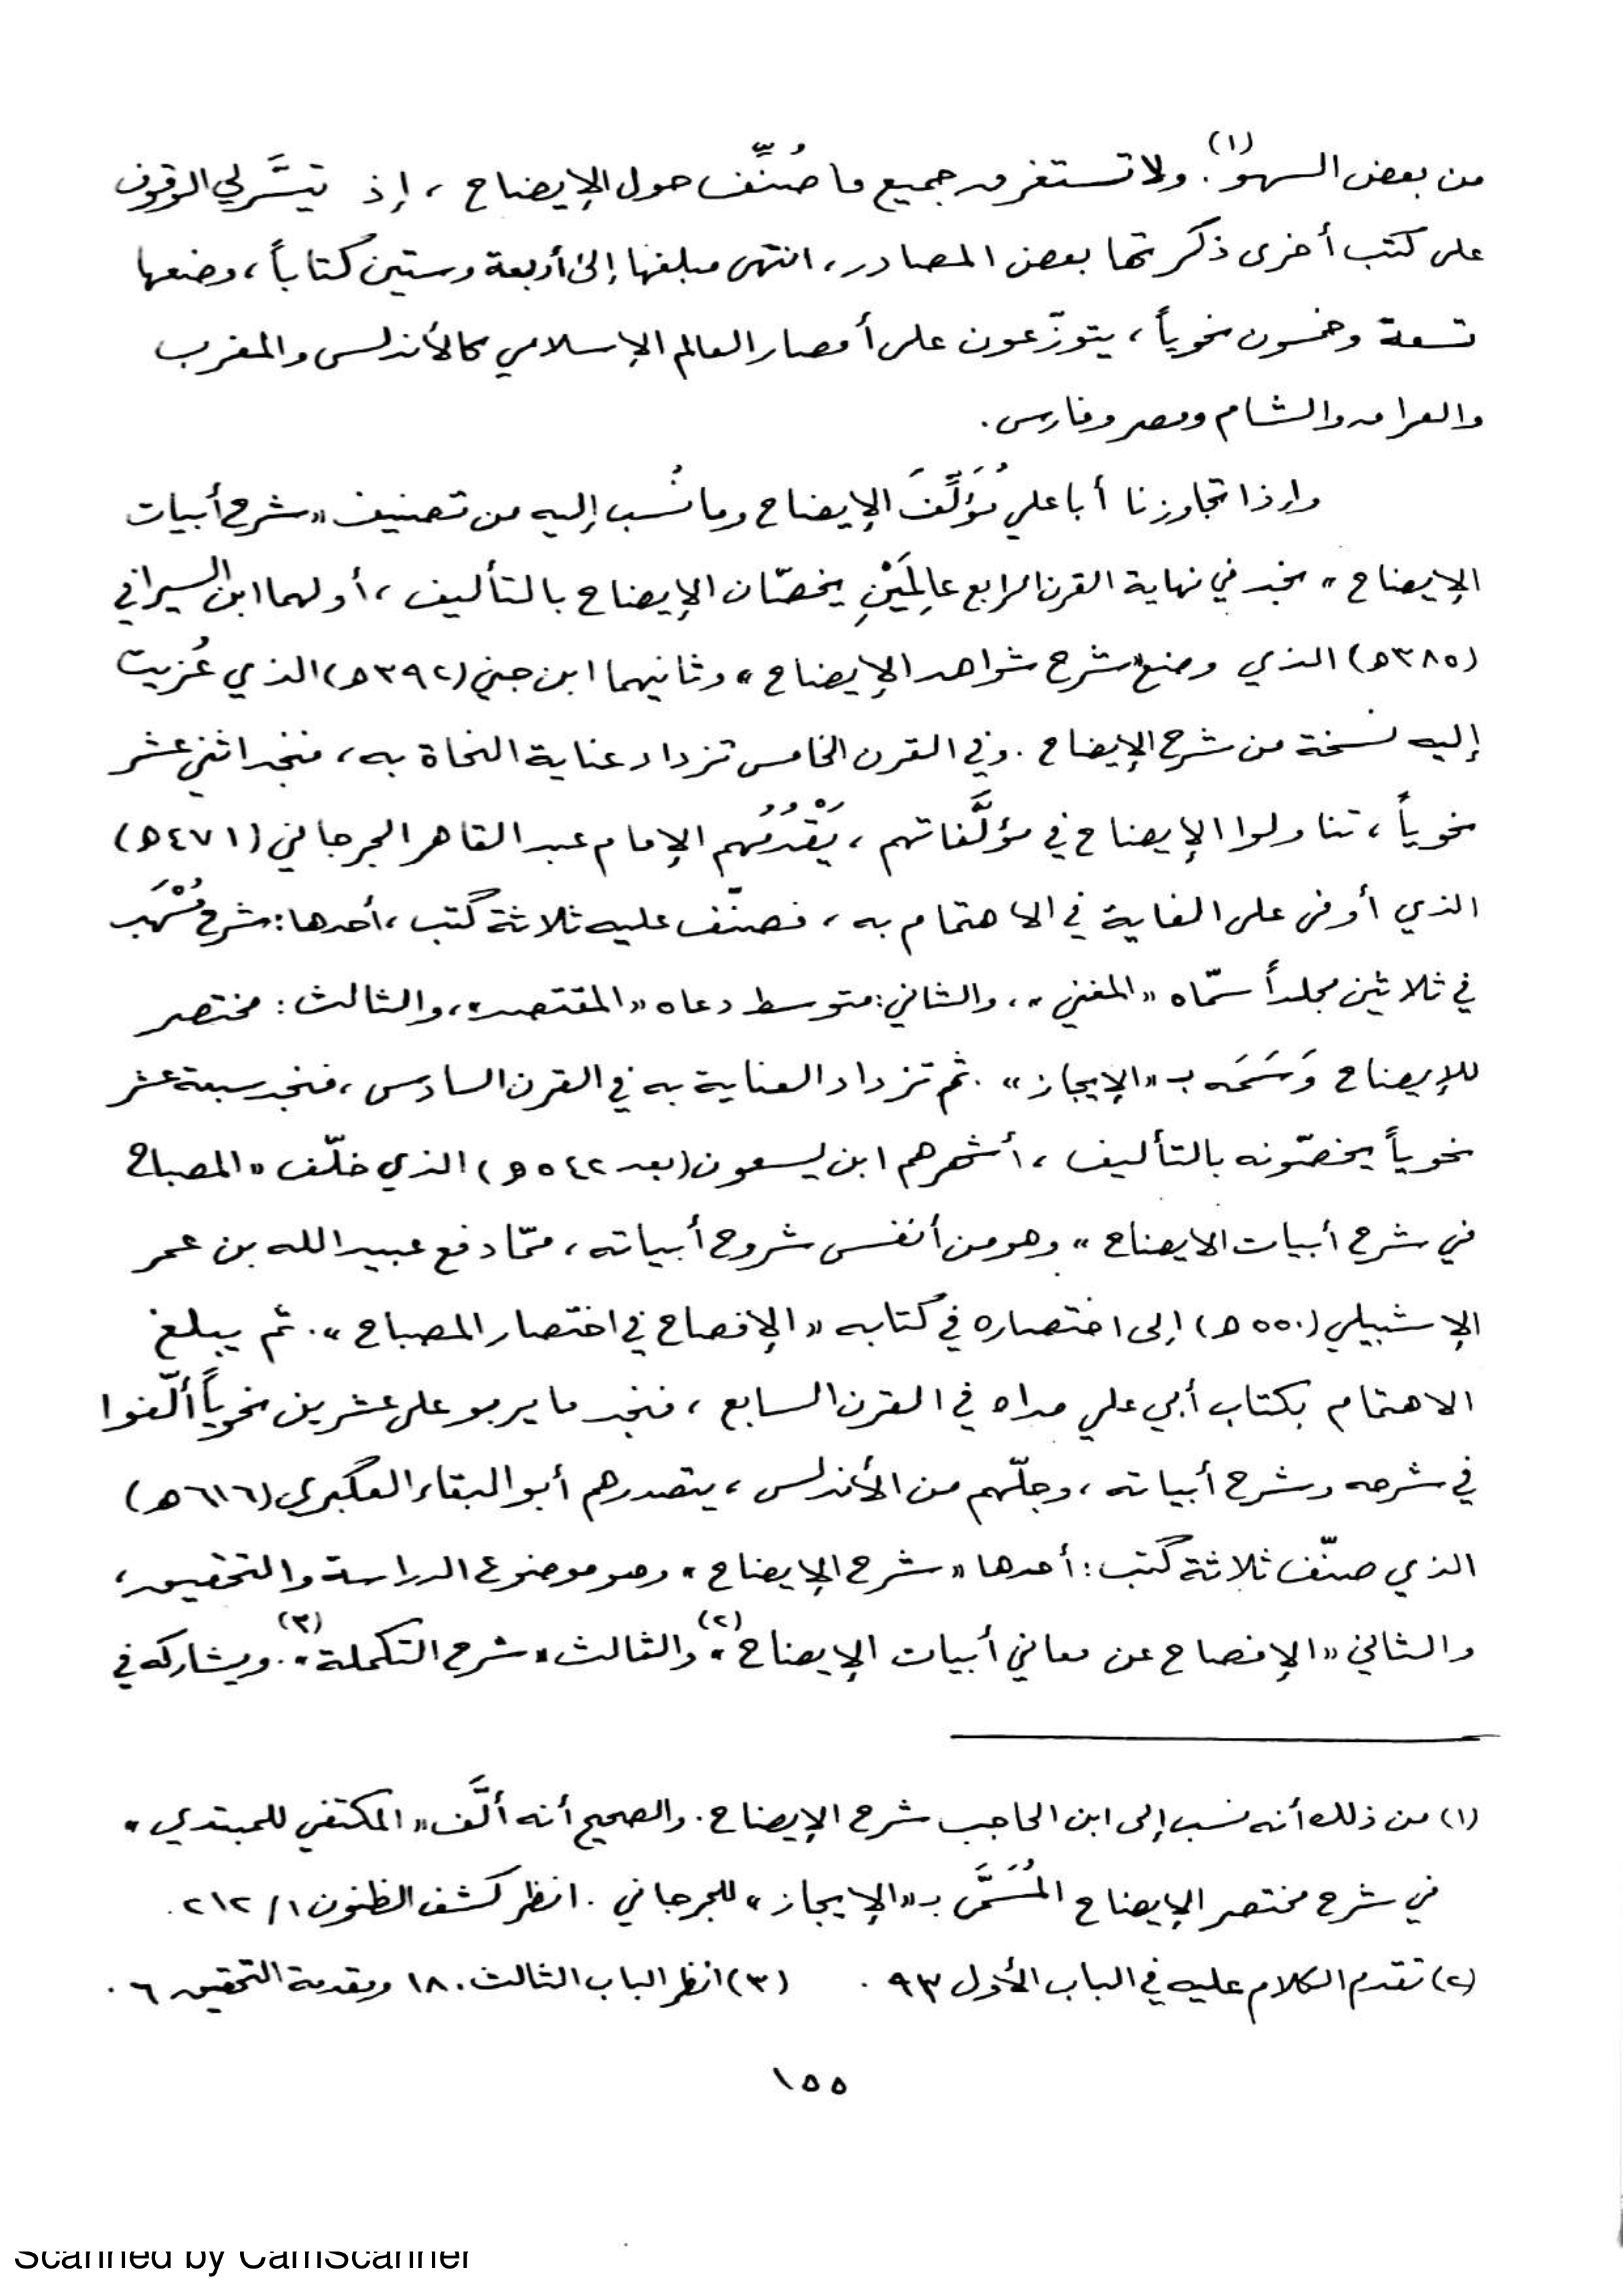 من بعض السهو(١). ولا تستغرق جميع ما صُنِّف حول الإيضاح ، إذ تيسَّر لي الوقوف
على كتب أخرى ذكرتها بعض المصادر، انتهى مبلغها إلى أربعة وستين كتاباً، وضعها
تسعة وخمسون نحوياً، يتوزّعون على أمصار العالم الإسلامي كالأندلس والمغرب
والعراق والشام ومصر وفارس.
وإذا تجاوزنا أبا علي مُؤَلِّفَ الإيضاح وما نُسب إليه من تصنيف «شرح أبيات
الإيضاح» نجد في نهاية القرن الرابع عالِمَيْنِ يخصّان الإيضاح بالتأليف، أولهما ابن السيرافي
(٣٨٥هـ) الذي وضع «شرح شواهد الإيضاح» وثانيهما ابن جني (٣٩٢هـ) الذي عُزيت
إليه نسخة من شرح الإيضاح. وفي القرن الخامس تزداد عناية النحاة به، فنجد اثني عشر
نحوياً، تناولوا الإيضاح في مؤلَّفاتهم، يَقْدُمُهم الإمام عبد القاهر الجرجاني (٤٧١هـ)
الذي أوفى على الغاية في الاهتمام به، فصنّف عليه ثلاثة كتب، أحدها: شرح مُسْهَب
في ثلاثين مجلداً سمّاه «المغني»، والثاني: متوسط دعاه «المقتصد»، والثالث: مختصر
للإيضاح وَسَمَه بـ «الإيجاز». ثم تزداد العناية به في القرن السادس، فنجد سبعة عشر
نحوياً يخصّونه بالتأليف، أشهرهم ابن يسعون (بعد ٥٤٢هـ) الذي خلّف «المصباح
في شرح أبيات الايضاح» وهو من أنفس شروح أبياته، ممّا دفع عبيد الله بن عمر
الإشبيلي (٥٥٠هـ) إلى اختصاره في كتابه «الإفصاح في اختصار المصباح». ثم يبلغ
الاهتمام بكتاب أبي علي مداه في القرن السابع، فنجد ما يربو على عشرين نحوياً ألّفوا
في شرحه وشرح أبياته، وجلّهم من الأندلس، يتصدرهم أبو البقاء العكبري (٦١٦هـ)
الذي صنّف ثلاثة كتب: أحدها «شرح الإيضاح» وهو موضوع الدراسة والتحقيق،
والثاني «الإفصاح عن معاني أبيات الإيضاح»(٢) والثالث «شرح التكملة»(٣). ويشاركه في
(١) من ذلك أنه نسب إلى ابن الحاجب شرح الإيضاح. والصحيح أنه ألَّف «المكتفي للمبتدي»
في شرح مختصر الإيضاح المُسَمَّى بـ «الإيجاز» للجرجاني. انظر كشف الظنون ١/ ٢١٢.
(٢) تقدم الكلام عليه في الباب الأول ٩٣. (٣) انظر الباب الثالث ١٨٠ ومقدمة التحقيق ٦.
١٥٥
Scanned by CamScanner